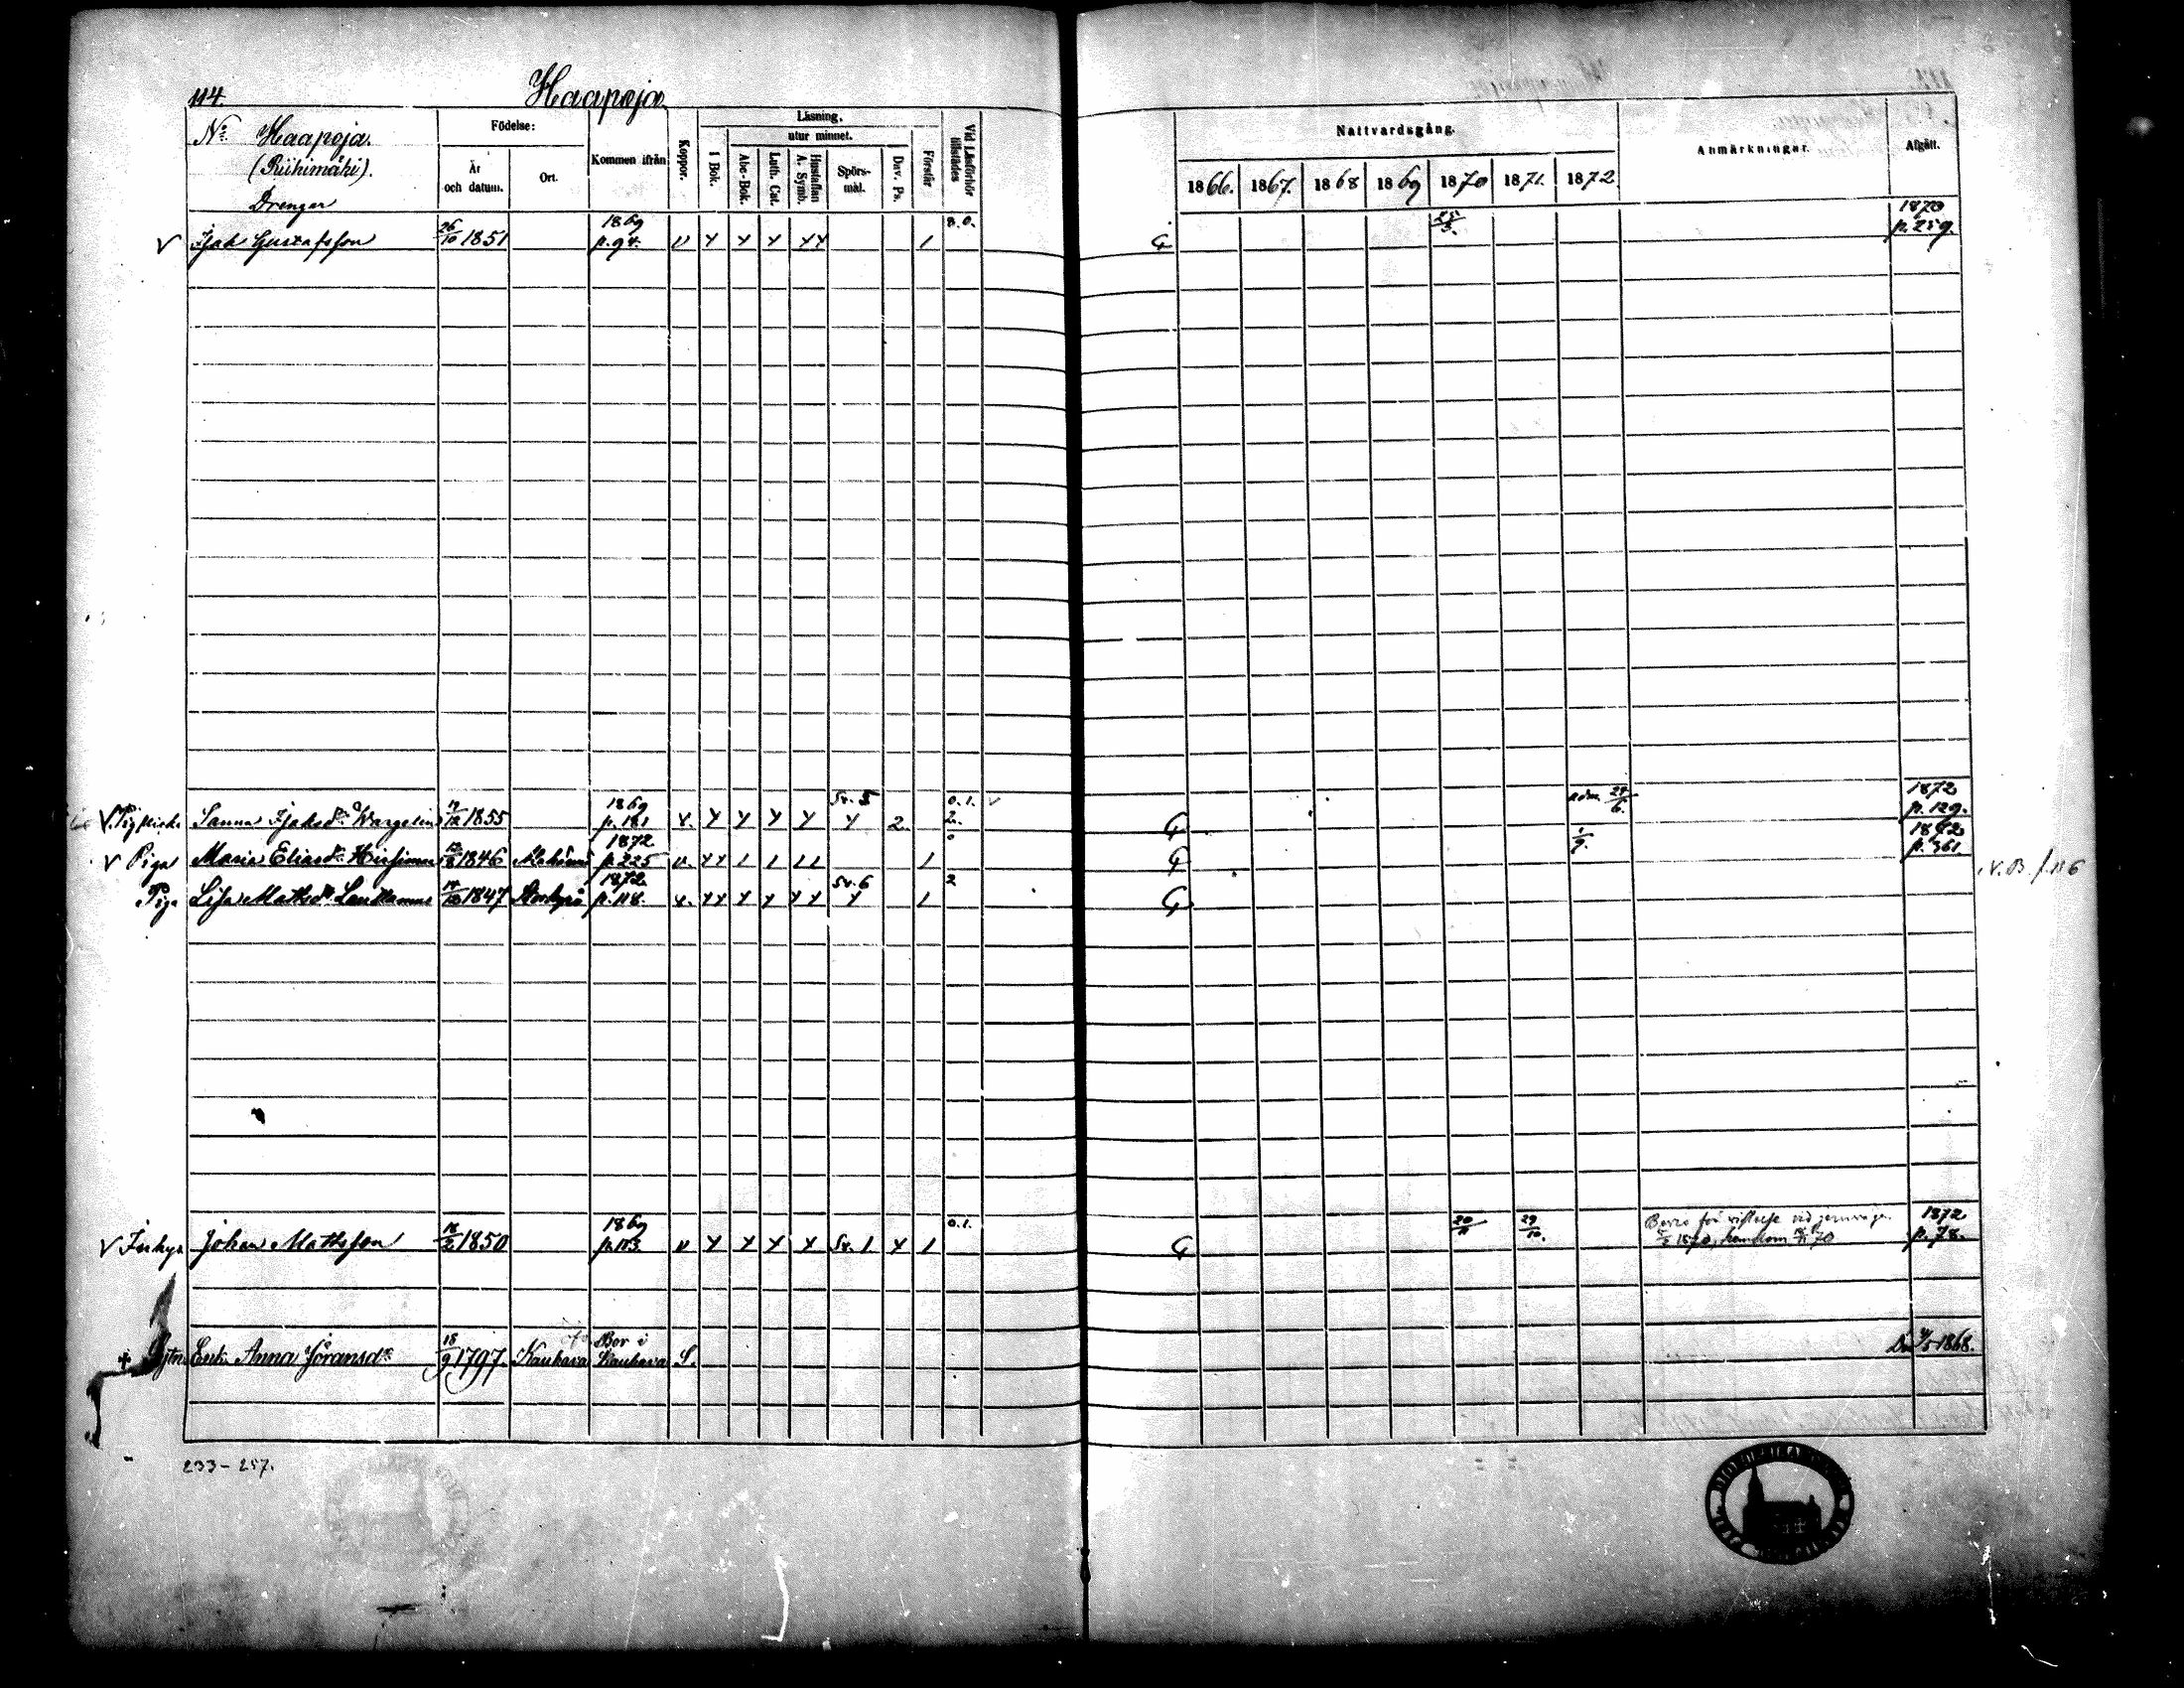 114.
Haapoja
No Haapoja.
(Riihimäki).
Drengar
Födelse:
År och datum.
Ort.
Kommen ifrån
Koppor.
Läsning.
I Bok.
utur minnet.
Abc-Bok.
Luth. Cat.
Hustaflan A. Symb.
Spörsmål.
Dav. Ps.
Förstår
Vid Läsförhör tillstädes
Nattvardsgång.
1866. 1867. 1868 1869 1870 1871. 1872
Anmärkningar.
Afgått.
v Isak Gustafsson 26/10 1851 1869 p. 94. v Y Y Y YY 1 0.0. G 25/3. 1870 p. 259.
Sanna Isaksdr Wargelin 1855 1869 p. 181 v. Y Y Y Y Sv. 5 Y 2. 0.1. 2. G adm. 29/6. 1872 p. 129.
v Piga Maria Eliasdr 1846 1872 p. 225 v. YY 1 1 11 1 0 G 1/9. 1872 p. 361.
Piga Lisa Mattsdr 1847 Storkyro 1872 p. 118. v. YY Y Y YY Sv. 6 Y 1 2 G N.B. f. 116
v Inhys Johan Mattsson 18/2 1850 1869 p. 113. v Y Y Y Y Sv. 1 Y 1 0.1. G 20/11 29/10. 1870, hemkom 70 1872 p. 78.
+ Enk. Anna Jöransdr 18/9 1797. Kauhava Bor i Kauhava S. Död 4/5 1868.
233-257.